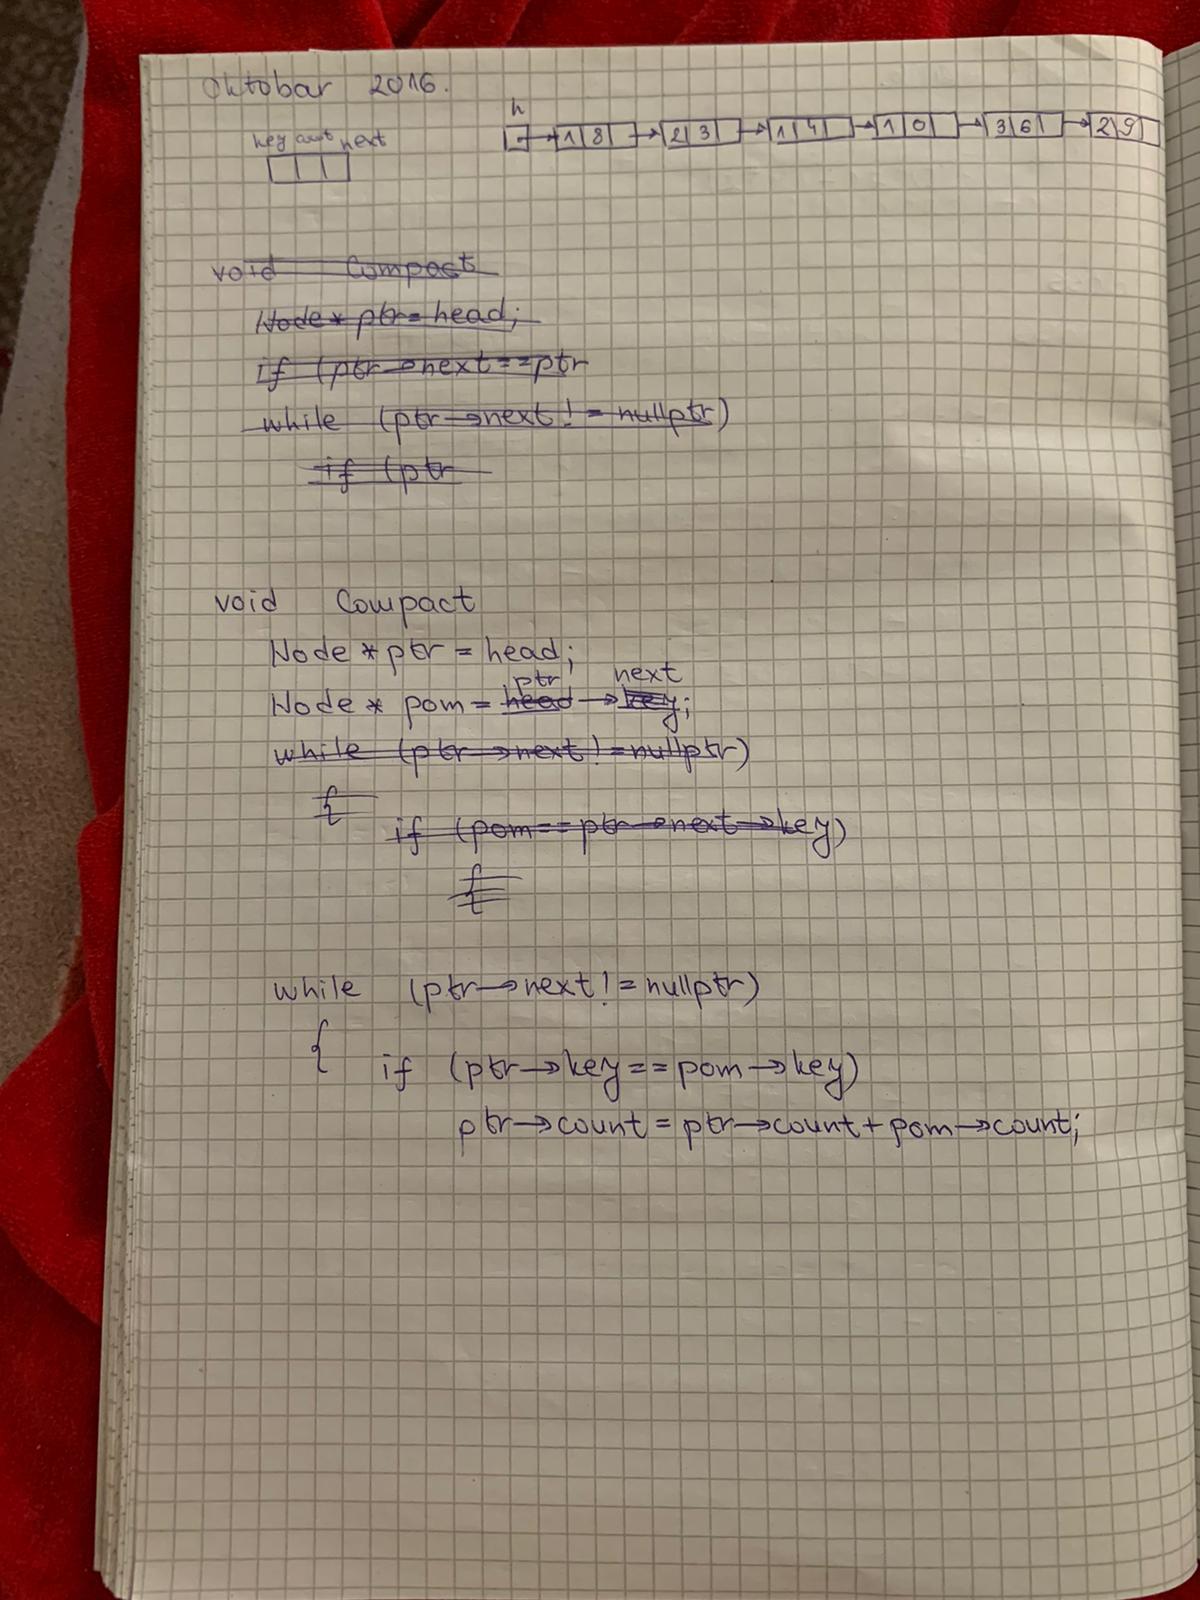 Oktobar 2016.
h
key count next
1 8 2 3 1 4 1 0 3 6 2 9
void Compact
Node* ptr = head;
if (ptr→next==ptr
while (ptr→next != nullptr)
if (ptr
void Compact
Node * ptr = head;
ptr next
Node * pom = head→key;
while (ptr→next != nullptr)
{
if (pom==ptr→next→key)
{
while (ptr→next != nullptr)
{ if (ptr→key==pom→key)
ptr→count = ptr→count + pom→count;